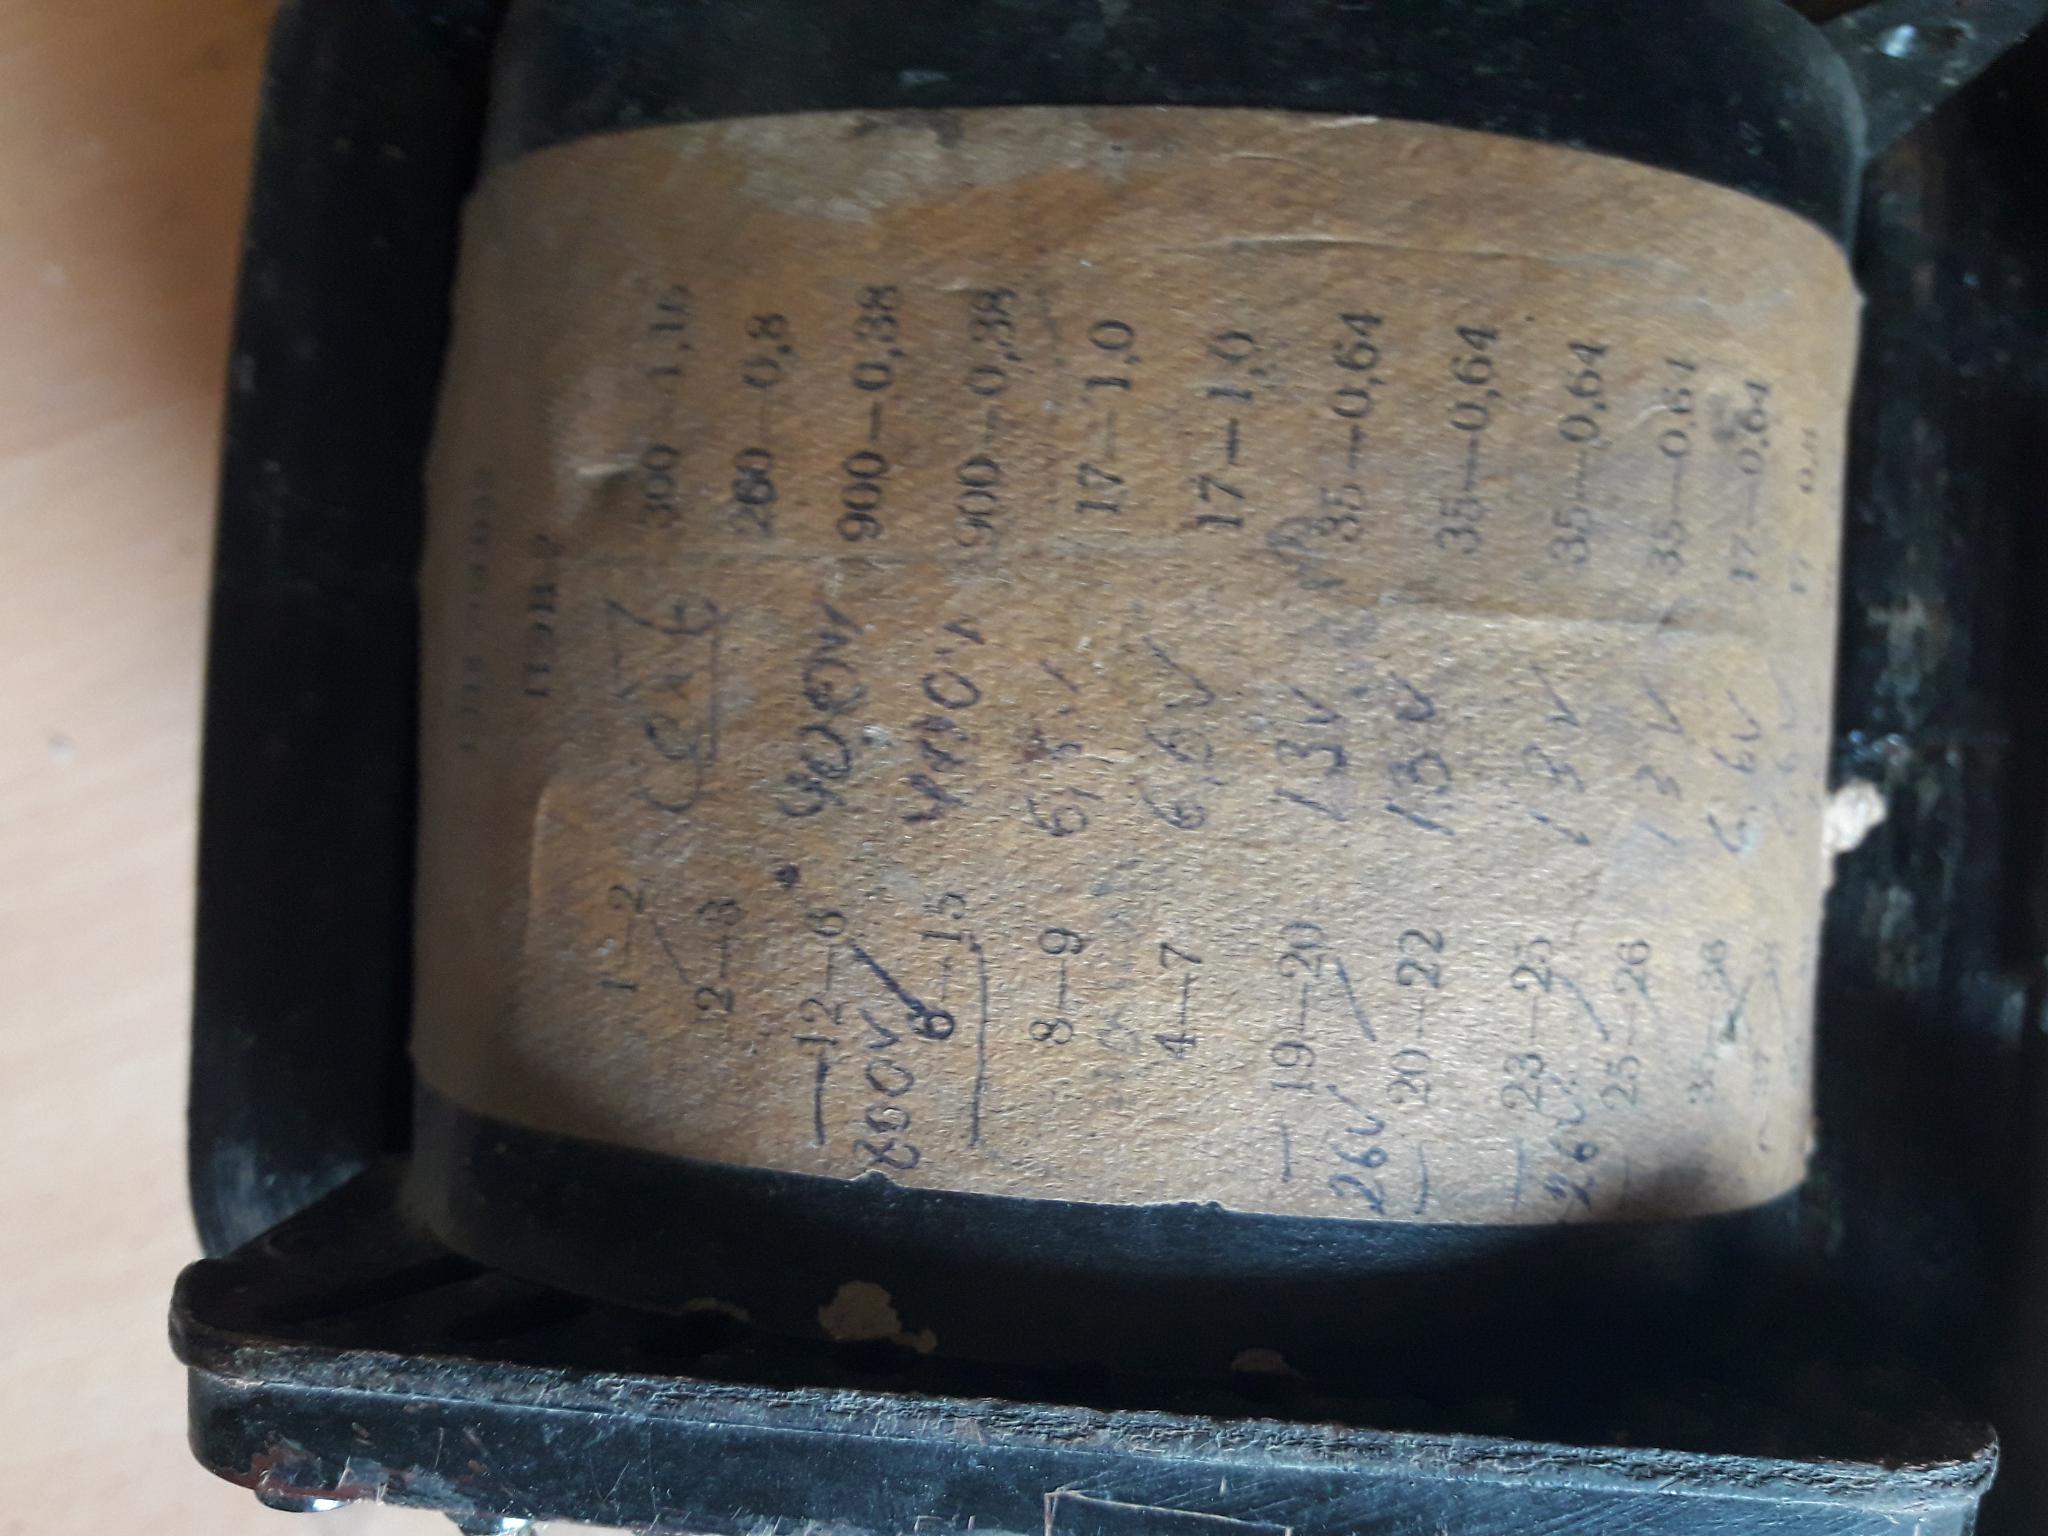 ПЭВ-2
1—2 300—1,16
2—3 260—0,8
12—6 400V 900—0,38
800V
6—15 440V 900—0,38
8—9 900—0,38 17—1,0
4—7 6,6V 17—1,0
19—20 13V 35—0,64
26V
20—22 13V 35—0,64
23—25 13V 35—0,64
26V
25—26 13V 35—0,64
6,6V 17—0,64